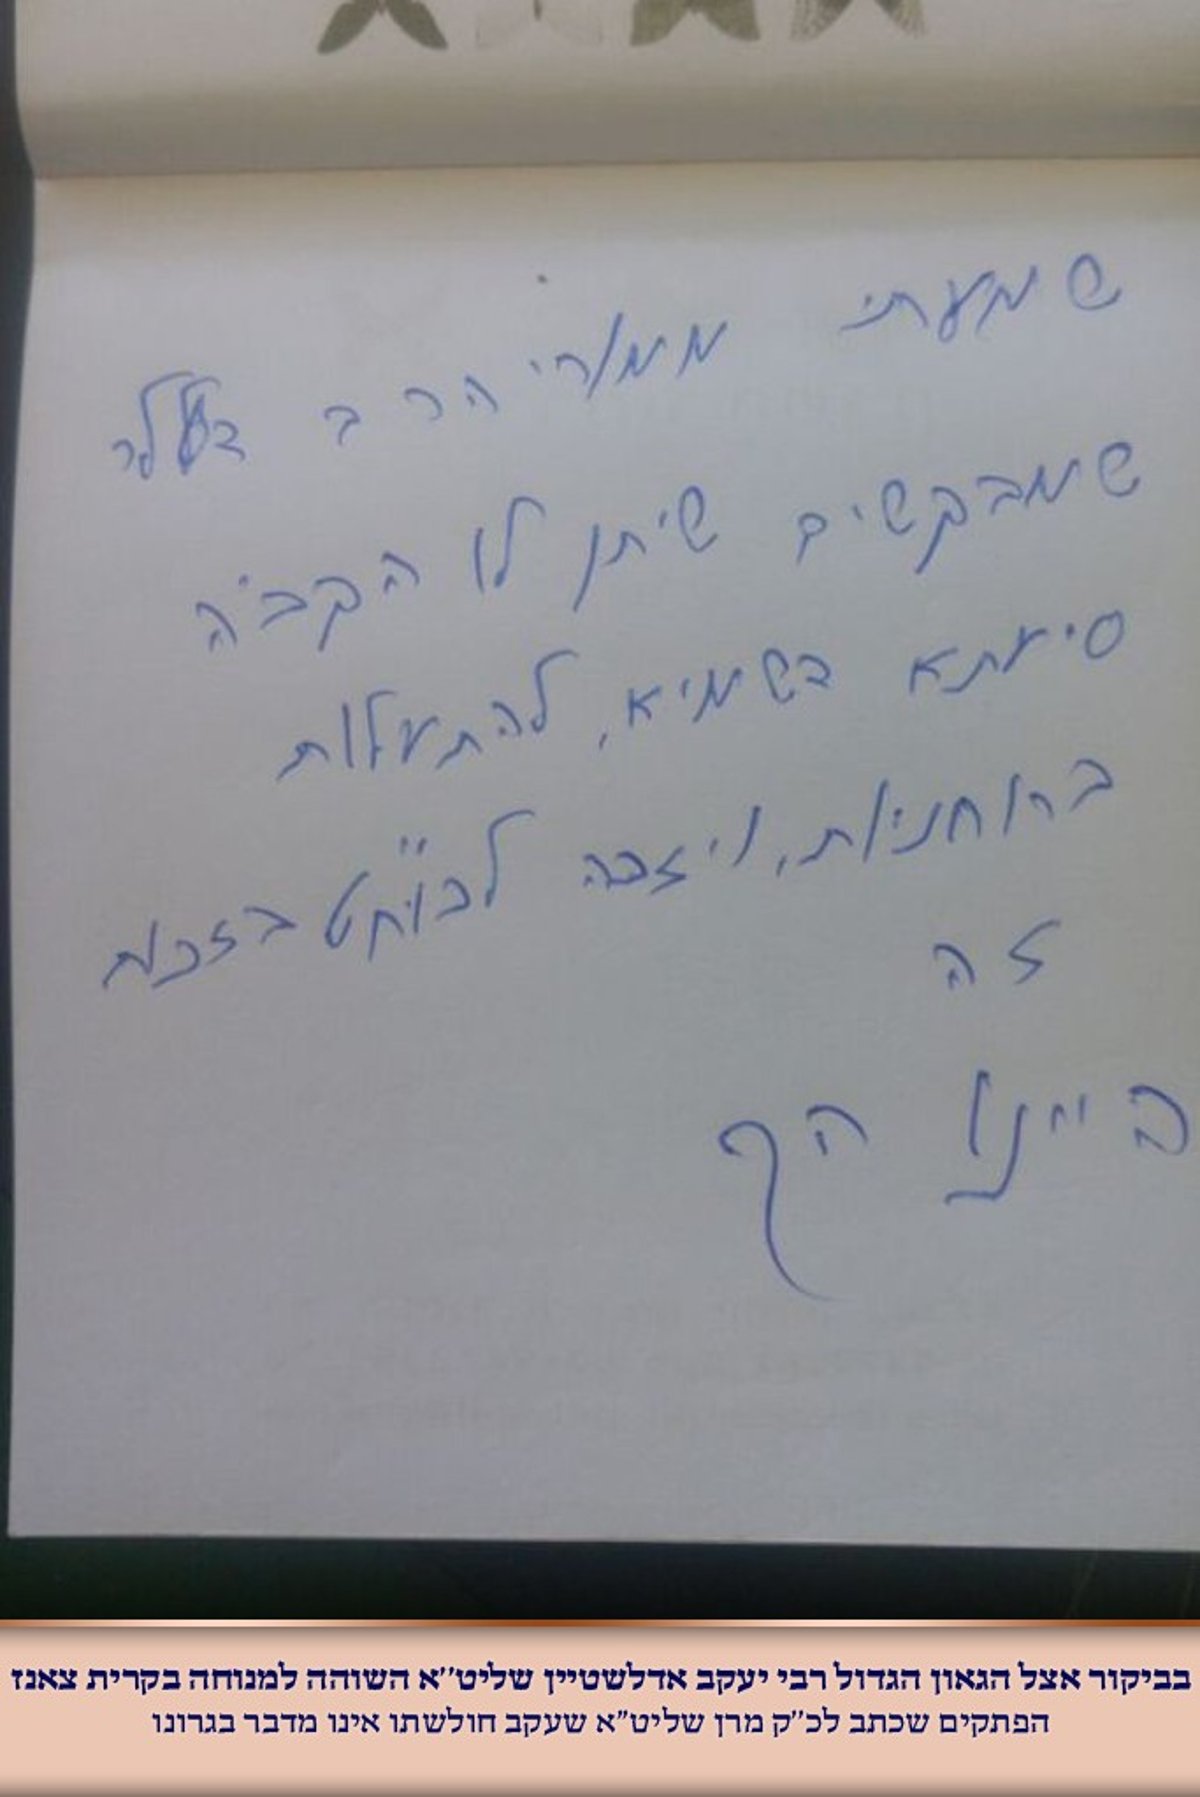 שמעתי ממורי הרב דעסלר
שמבקשים שיתן לו הקב"ה
סיעתא דשמיא, להתעלות
ברוחניות, ויזכה לכוח"ט בזכות
זה
היינו הך
בביקור אצל הגאון הגדול רבי יעקב אדלשטיין שליט"א השוהה למנוחה בקרית צאנז
הפתקים שכתב לכ"ק מרן שליט"א שעקב חולשתו אינו מדבר בגרונו